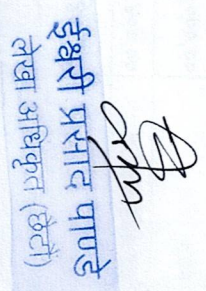 ईश्वरी प्रसाद पाण्डे
लेखा अधिकृत (छैटौं)